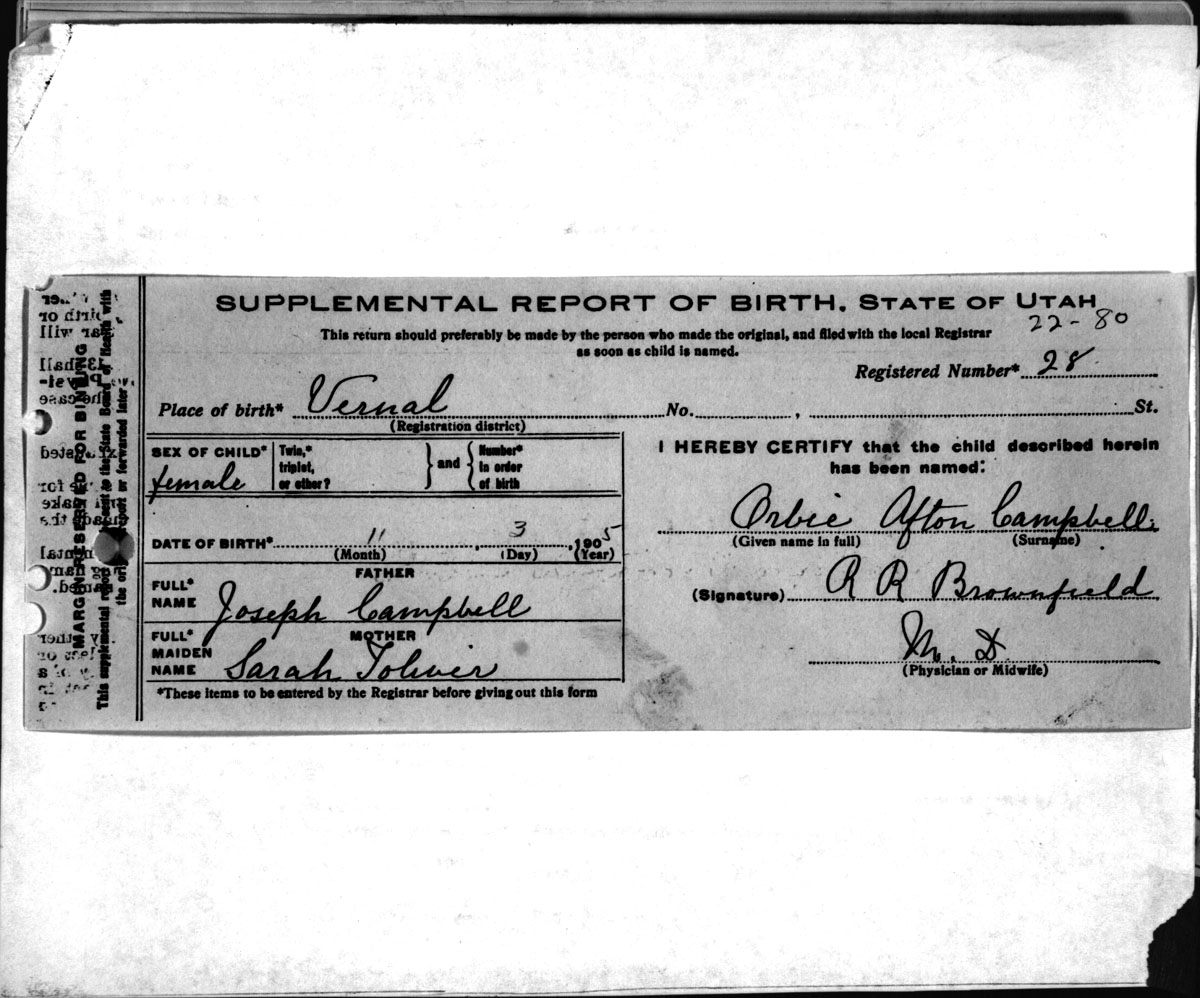 SUPPLEMENTAL REPORT OF BIRTH. STATE OF UTAH
This return should preferably be made by the person who made the original, and filed with the local Registrar
as soon as child is named.
22-80
Registered Number* 28
Place of birth* Vernal No. , St.
(Registration district)
SEX OF CHILD*
female
Twin,*
triplet,
or other?
and
Number*
in order
of birth
DATE OF BIRTH* 11 , 3 , 1905
(Month) (Day) (Year)
FATHER
FULL*
NAME Joseph Campbell
MOTHER
FULL*
MAIDEN
NAME Sarah Toliver
*These items to be entered by the Registrar before giving out this form
I HEREBY CERTIFY that the child described herein
has been named:
Orbie Afton Campbell
(Given name in full) (Surname)
(Signature) R R Brownfield
M. D
(Physician or Midwife)
MARGIN RESERVED FOR BINDING
This supplemental report sent to the State Board of Health with
the report or forwarded later